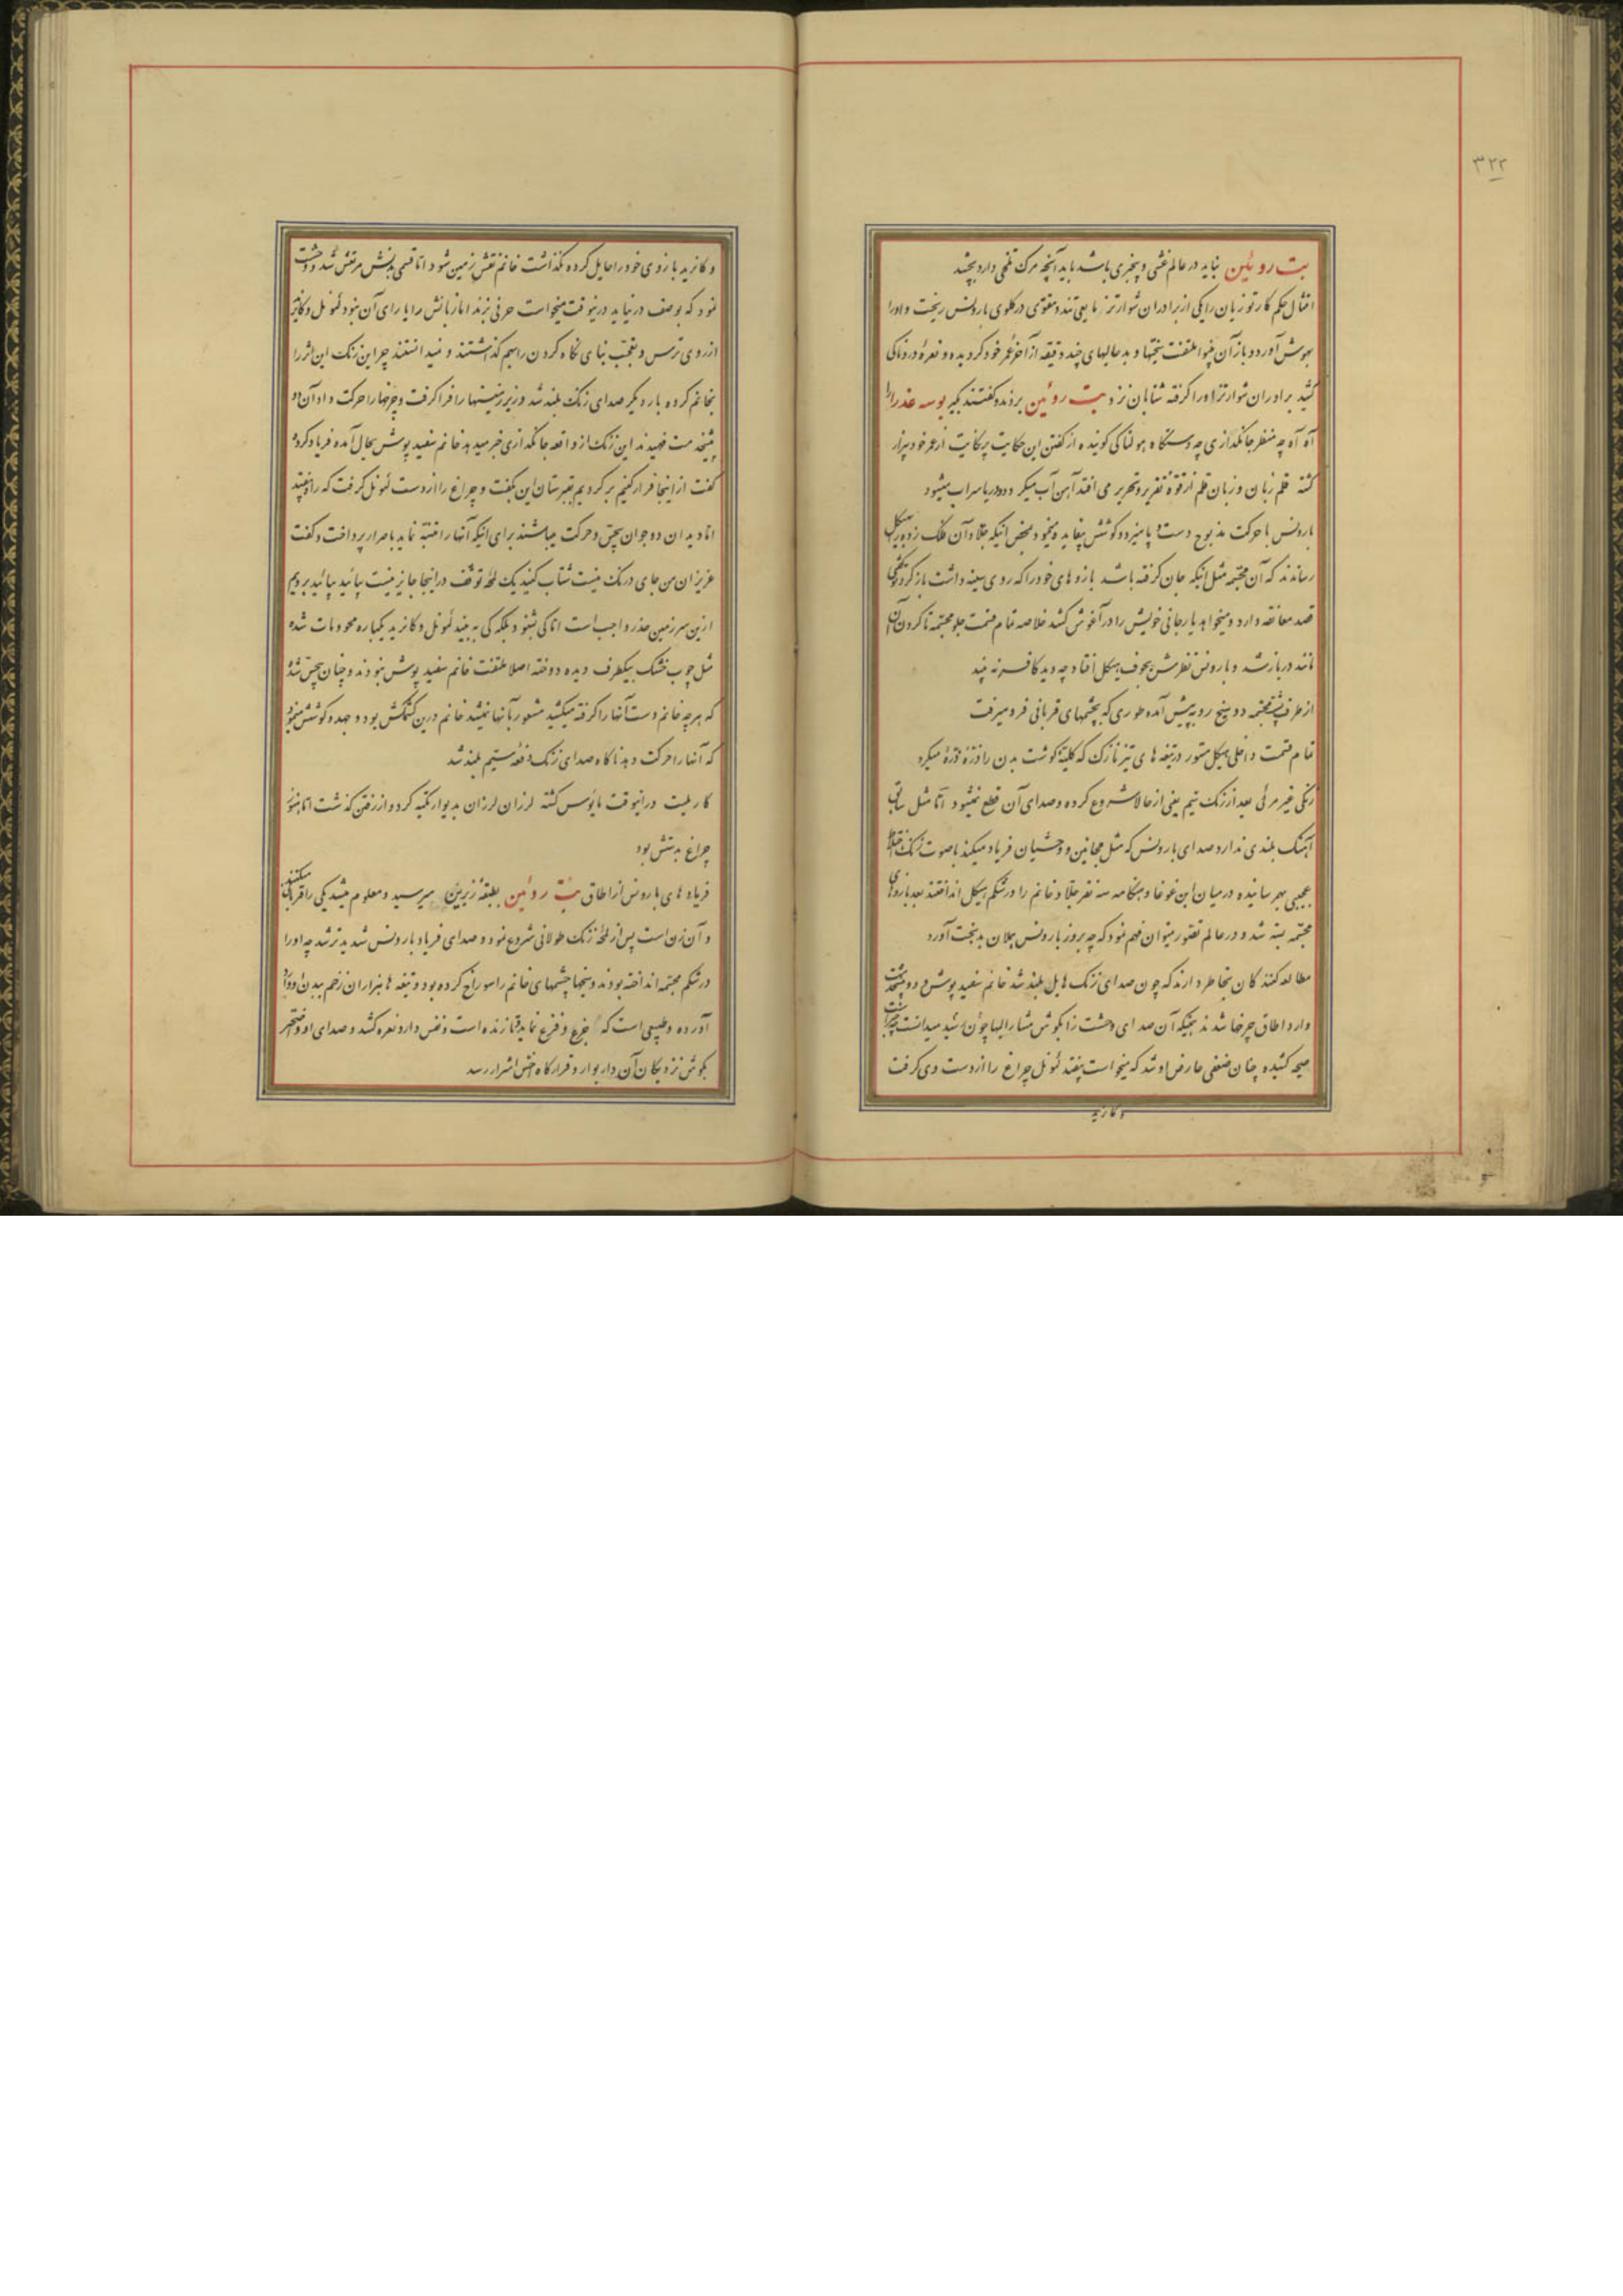 ۳۲۲
بت روئین نباید در عالم غشی و بیخبری باشد باید آنچه مرک تلخی دارد بچشد
امتثال حکم کارتوزیان را یکی از برادران شوارتز مایعی تند و مقوی در گلوی بارونس ریخت و اورا
بهوش آورد و باز آن بینوا ملتفت بدبختیها و بدحالیهای چند دقیقه از آخر عمر خود گردیده و نعرهٔ دردناکی
کشید برادران شوارتز اورا گرفته شتابان نزد بت روئین بردند و گفتند بگیر بوسه عذرا را
آه آه چه منظر جانگدازی چه دستگاه هولناکی گوینده از گفتن این حکایت پر نکایت از عمر خود بیزار
گشته قلم زبان و زبان قلم از قوهٔ تقریر و تحریر می افتد آهن آب میگردد و دریا سراب میشود
بارونس با حرکت مذبوح دست و پا میزد و کوشش بیفایده مینمود بمحض اینکه جلادان فلک زده را بهیکل
رساندند که آن مجسمه مثل اینکه جان گرفته باشد بازوهای خود را که روی سینه داشت باز کرد گفتی
قصد معانقه دارد و میخواهد یار جانی خویش را در آغوش کشد خلاصه تمام قسمت جلو مجسمه تا گردن آن
مانند در باز شد و بارونس نظرش بجوف هیکل افتاد چه دید کافر نه بیند
از طرف پشت مجسمه دو میخ رو به پیش آمده طوری که بچشمهای قربانی فرو میرفت
تمام قسمت داخلی هیکل مستور در تیغه های تیز نازک که کلیتهً گوشت بدن را ذره ذره میکرد
زنگی غیر مرئی بعد از زنک سیم یعنی از حالا شروع کرده و صدای آن قطع نمیشود اما مثل سابق
آهنک بلندی ندارد صدای بارونس که مثل مجانین و وحشیان فریاد میکند با صوت زنک اختلاط
عجیبی بهم رسانیده در میان این غوغا و هنگامه سه نفر جلاد خانم را در شکم هیکل انداختند بعد بازوهای
مجسمه بسته شد و در عالم تصور میتوان فهم نمود که چه بروز بارونس بیجان بدبخت آورد
مطالعه کنندگان بخاطر دارند که چون صدای زنک هابل بلند شد خانم سفید پوش و دو پیشخدمت
وارد اطاق چرخها شدند همینکه آن صدای وحشت زا بگوش مشارالیها چون رسید میدانست چیست
صیحه کشیده چنان ضعفی عارض او شد که میخواست بیفتد لئونل چراغ را از دست وی گرفت
وکانرید
و کانرید بازوی خود را حایل کرده نگذاشت خانم نقش زمین شود اما قسمی بدنش مرتعش شد و وحشت
نمود که بوصف در نیاید در نیوقت میخواست حرفی بزند اما زبانش را یارای آن نبود لئونل و کانرید
از روی ترس و تعجب بنای نگاه کردن را بهم گذاشتند و نمیدانستند چرا این زنک این اثر را
بخانم کرده بار دیگر صدای زنک بلند شد و زیرزمینها را فرا گرفت و چرخها را حرکت داد آن دو
پیشخدمت فهمیدند این زنک از واقعه جانگدازی خبر میدهد خانم سفید پوش بحال آمده فریاد کرده
گفت از اینجا فرار کنیم بر گردیم بقبرستان این بگفت و چراغ را از دست لئونل گرفت که راه افتد
اما دید آن دو جوان بیحس و حرکت میباشند برای اینکه آنها را متنبه نماید باصرار پرداخت و گفت
عزیزان من جای درنک نیست شتاب کنید یک لحظه توقف در اینجا جایز نیست بیائید بیائید برویم
ازین سرزمین حذر واجب است اما کی بشنود بلکه کی به بیند لئونل و کانرید یکباره محو و مات شده
مثل چوب خشک بیکطرف دیده دوخته اصلا ملتفت خانم سفید پوش نبودند و چنان بیحس شده
که هر چه خانم دست آنها را گرفته میکشید مشعور بآنها نمیشد خانم درین کشمکش بود و جهد و کوشش مینمود
که آنها را حرکت دهد ناگاه صدای زنک دفعهٔ سیم بلند شد
کارلیت در اینوقت مأیوس گشته لرزان لرزان بدیوار تکیه کرد و از رفتن گذشت اما هنوز
چراغ بدستش بود
فریاد های بارونس از اطاق بت روئین بطبقهٔ زیرین میرسید و معلوم میشد یکی را قربانی میکنند
و آن زن است پس از لحظهٔ زنک طولانی شروع نمود و صدای فریاد بارونس شدیدتر شد چه اورا
در شکم مجسمه انداخته بودند و میخها چشمهای خانم را سوراخ کرده بود و تیغه ها هزاران زخم ببدن او وارد
آورده و طبیعی است که جزع و فزع نماید و تا زنده است و نفس دارد نعره کشد و صدای او و ضجه
بگوش نزدیکان آن دار بوار و قرارگاه اخس اشرار رسد